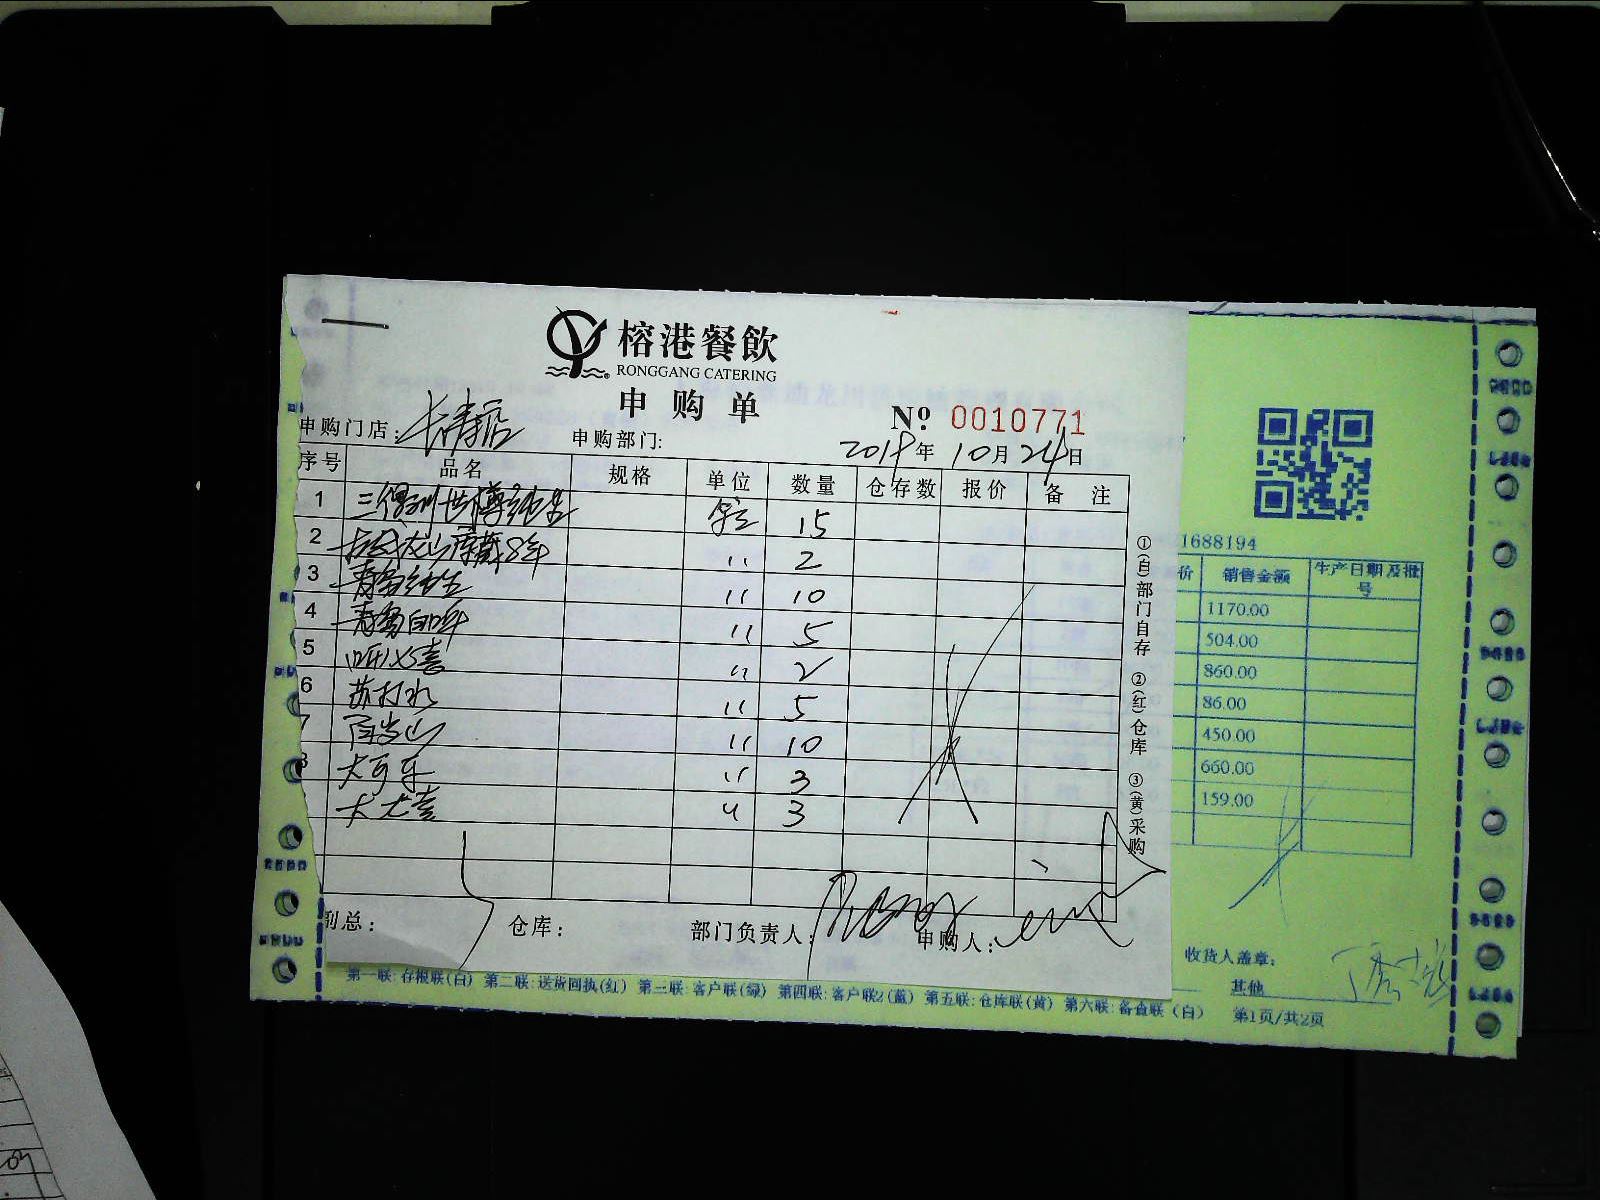 榕港餐飲
RONGGANG CATERING
申购单
№ 0010771
申购门店: 长寿店 申购部门: 2018年 10月 24日
序号 品名 规格 单位 数量 仓存数 报价 备注
1 15
2 库藏8年 〃 2
3 青岛纯生 〃 10
4 青岛 〃 5
5 听 〃 2
6 苏打水 〃 5
7 〃 10
8 大可乐 〃 3
大 〃 3
①(白)部门自存 ②(红)仓库 ③(黄)采购
副总: 仓库: 部门负责人: 申购人:
1688194
价 销售金额 生产日期及批号
1170.00
504.00
860.00
86.00
450.00
660.00
159.00
收货人盖章:
其他
第一联:存根联(白) 第二联:送货回执(红) 第三联:客户联(绿) 第四联:客户联2(蓝) 第五联:仓库联(黄) 第六联:备查联(白) 第1页/共2页